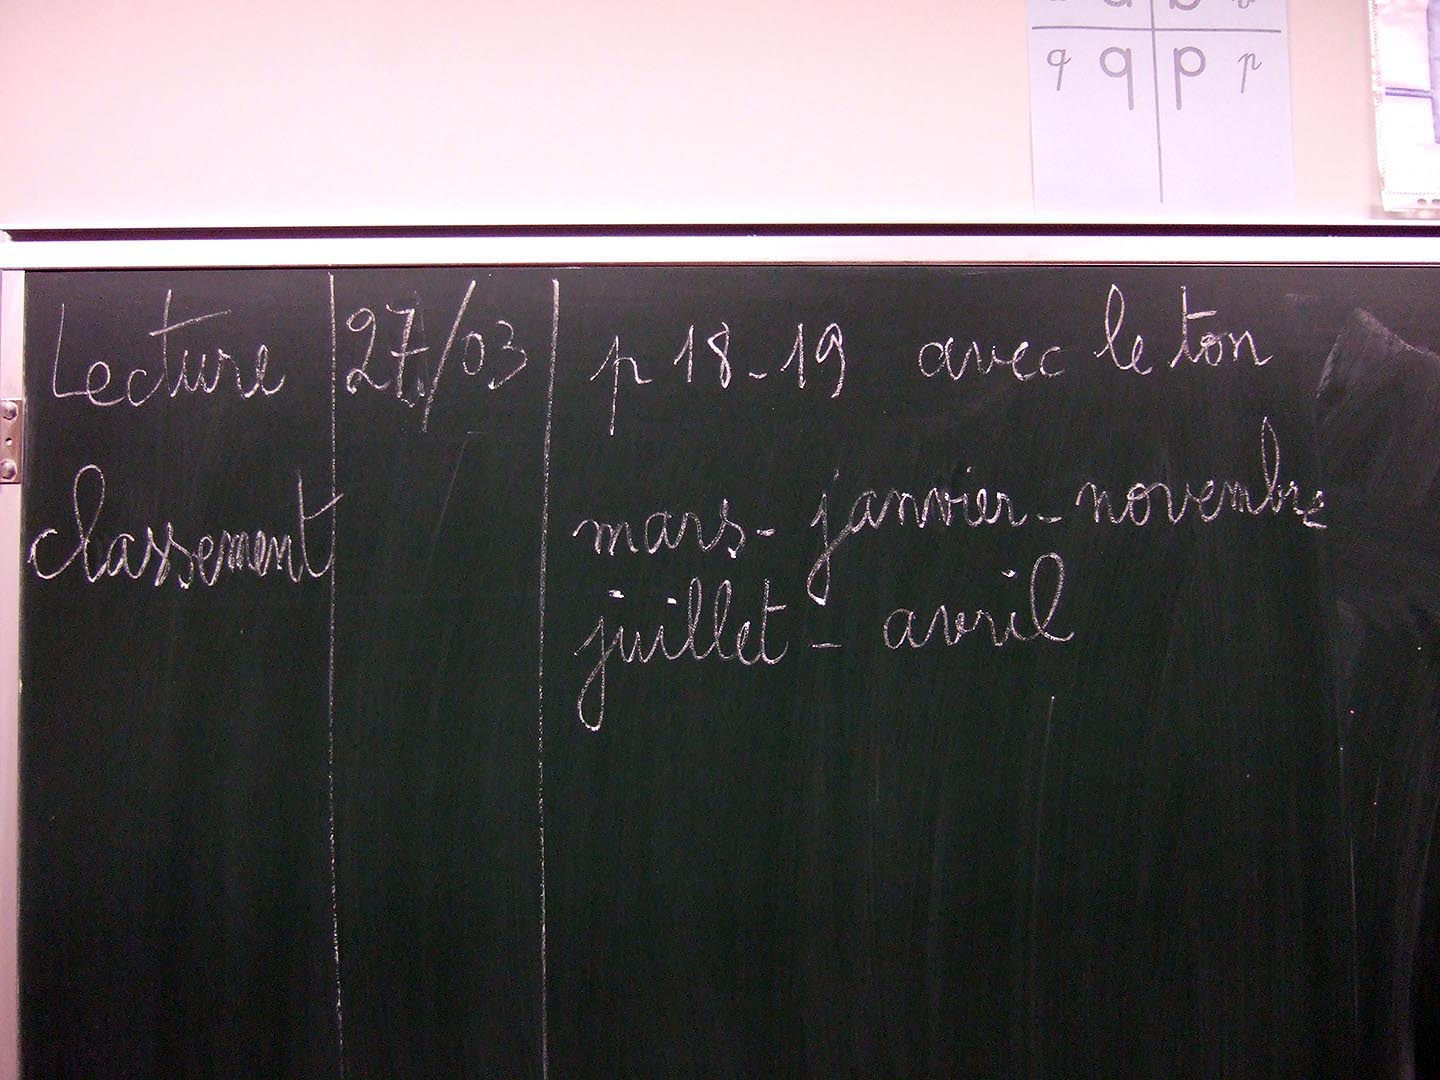 q q p p
Lecture 27/03 p 18-19 avec le ton
classement mars - janvier - novembre
juillet - avril